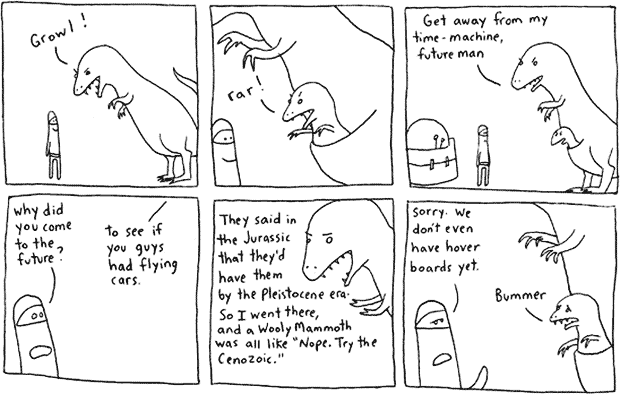 Growl!
rar!
Get away from my
time-machine,
future man
why did
you come
to the
future?
to see if
you guys
had flying
cars.
They said in
the Jurassic
that they'd
have them
by the Pleistocene era.
So I went there,
and a Wooly Mammoth
was all like "Nope. Try the
Cenozoic."
Sorry. We
don't even
have hover
boards yet.
Bummer